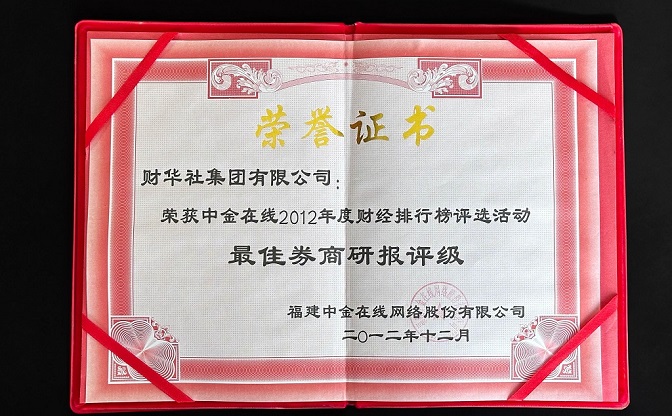 荣誉证书
财华社集团有限公司：
荣获中金在线2012年度财经排行榜评选活动
最佳券商研报评级
福建中金在线网络股份有限公司
二〇一二年十二月